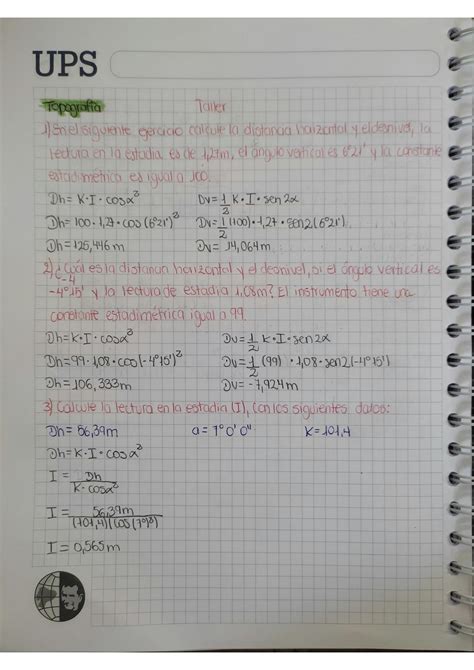 UPS
Topografía Taller
1) En el siguiente ejercicio calcule la distancia horizontal y el desnivel, la
lectura en la estadia es de 1,27m, el ángulo vertical es 6°21' y la constante
estadimétrica es igual a 100.
Dh= K·I·cosα² Dv= 1/2 K·I·sen2α
Dh= 100·1,27·cos(6°21')² Dv= 1/2 (100)·1,27·sen2(6°21')
Dh= 125,446m Dv= 14,064m
2) ¿Cuál es la distancia horizontal y el desnivel, si el ángulo vertical es
-4°15' y la lectura de estadia 1,08m? El instrumento tiene una
constante estadimétrica igual a 99.
Dh= K·I·cosα² Dv= 1/2 K·I·sen2α
Dh= 99·1,08·cos(-4°15')² Dv= 1/2 (99)·1,08·sen2(-4°15')
Dh= 106,333m Dv= -7,924m
3) Calcule la lectura en la estadia (I), con los siguientes datos:
Dh= 56,39m a= 7°0'0" K= 101,4
Dh= K·I·cosα²
I = Dh / K·cosα²
I = 56,39m / (101,4)(cos(7°)²)
I = 0,565m
UPS